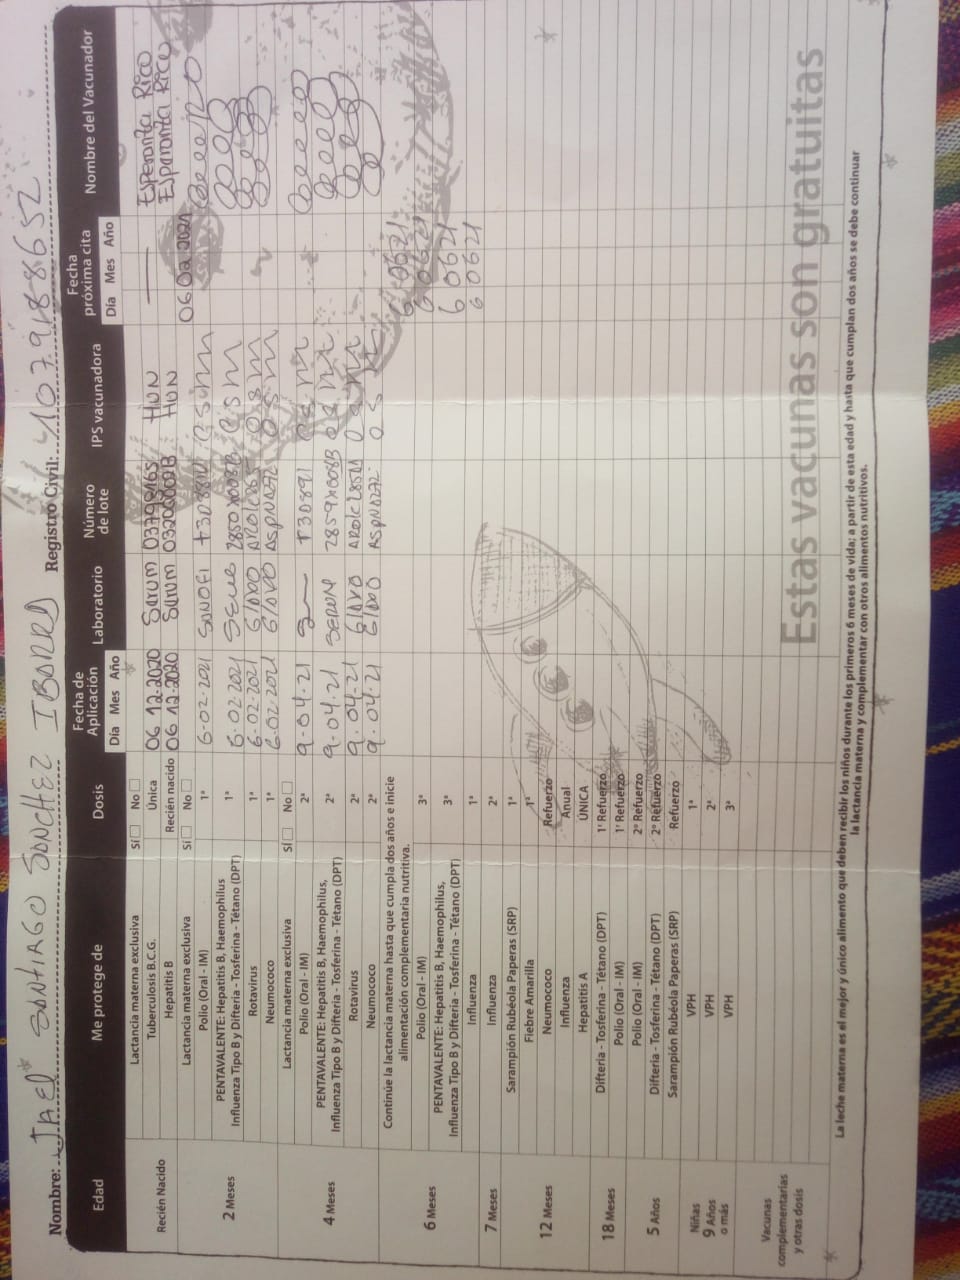 Nombre: JAEL SANTIAGO SANCHEZ IBARRA Registro Civil: 1079188652
Edad Me protege de Dosis Fecha de Aplicación Día Mes Año Laboratorio Número de lote IPS vacunadora Fecha próxima cita Día Mes Año Nombre del Vacunador
Recién Nacido
Lactancia materna exclusiva Sí No
Tuberculosis B.C.G. Única 06 12-2020 Serum 0379G165 HUN Esperanta Rico
Hepatitis B Recién nacido 06 12-2020 Serum HUN Esparanta Rico
2 Meses
Lactancia materna exclusiva Sí No 06 02 2021
Polio (Oral - IM) 1ª 6-02-2021 SANOFI
PENTAVALENTE: Hepatitis B, Haemophilus
Influenza Tipo B y Difteria - Tosferina - Tétano (DPT) 1ª 6-02 2021
Rotavirus 1ª 6-02-2021
Neumococo 1ª 6-02 2021
4 Meses
Lactancia materna exclusiva Sí No
Polio (Oral - IM) 2ª 9-04-21 T3D891
PENTAVALENTE: Hepatitis B, Haemophilus,
Influenza Tipo B y Difteria - Tosferina - Tétano (DPT) 2ª 9-04-21 SERUM
Rotavirus 2ª 9.04-21
Neumococo 2ª 9.04-21
6 Meses
Continúe la lactancia materna hasta que cumpla dos años e inicie
alimentación complementaria nutritiva. 6 06 21
Polio (Oral - IM) 3ª 6 06 21
PENTAVALENTE: Hepatitis B, Haemophilus,
Influenza Tipo B y Difteria - Tosferina - Tétano (DPT) 3ª 6 06 21
Influenza 1ª 6 06 21
7 Meses
Influenza 2ª
12 Meses
Sarampión Rubéola Paperas (SRP) 1ª
Fiebre Amarilla 1ª
Neumococo Refuerzo
Influenza Anual
Hepatitis A ÚNICA
18 Meses
Difteria - Tosferina - Tétano (DPT) 1º Refuerzo
Polio (Oral - IM) 1º Refuerzo
5 Años
Polio (Oral - IM) 2º Refuerzo
Difteria - Tosferina - Tétano (DPT) 2º Refuerzo
Sarampión Rubéola Paperas (SRP) Refuerzo
Niñas 9 Años o más
VPH 1ª
VPH 2ª
VPH 3ª
Vacunas
complementarias
y otras dosis
Estas vacunas son gratuitas
La leche materna es el mejor y único alimento que deben recibir los niños durante los primeros 6 meses de vida; a partir de esta edad y hasta que cumplan dos años se debe continuar
la lactancia materna y complementar con otros alimentos nutritivos.